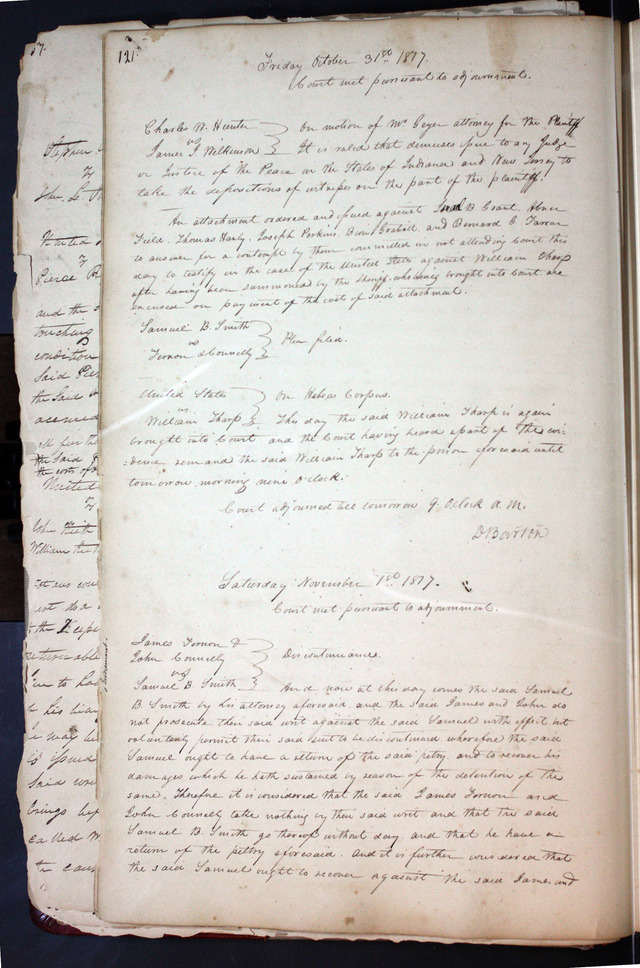 121.
Friday October 31st 1817.
Court met pursuant to adjournment.
Charles W. Hunter
vs
James J. Wilkinson } On motion of Mr Geyer attorney for the Plaintiff
It is ruled that demises issue to any Judge
or Justice of the Peace in the States of Indiana and New Jersey to
take the depositions of witnesses on the part of the plaintiff.
An attachment ordered and issued against B Grant, Abner
Field, Thomas Hanly, Joseph Perkins, and Bernard G. Farrar
to answer for a contempt by them committed in not attending Court this
day to testify in the case of the United States against William Tharp
after having been summoned by the Sheriff who being brought into Court are
excused on payment of the costs of said attachment.
Samuel B. Smith
vs
Tornon & Connelly } Plea filed.
United States
vs
William Tharp } On Habeas Corpus.
This day the said William Tharp is again
brought into Court and the Court having heard a part of the evi-
dence, remand the said William Tharp to the prison aforesaid until
tomorrow morning nine o'clock.
Court adjourned till tomorrow 9 OClock A.M.
D Barton
Saturday November 1st 1817.
Court met pursuant to adjournment.
James Tornon &
John Connelly
vs
Samuel B. Smith } Discontinuance.
And now at this day comes the said Samuel
B. Smith by his attorney aforesaid and the said James and John do
not prosecute their said writ against the said Samuel with effect but
voluntarily permit their said suit to be discontinued wherefore the said
Samuel ought to have a return of the said and to recover his
damages which he hath sustained by reason of the detention of the
same. Therefore it is considered that the said James Tornon and
John Connelly take nothing by their said writ and that the said
Samuel B. Smith go thereof without day, and that he have a
return of the aforesaid. And it is further considered that
the said Samuel ought to recover against the said James and